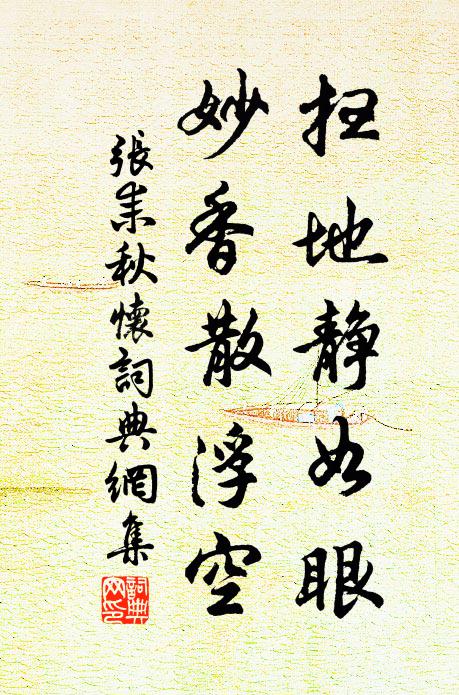 扫地静如眼
妙香散浮空
張耒秋懷詞典網集
詞典网印